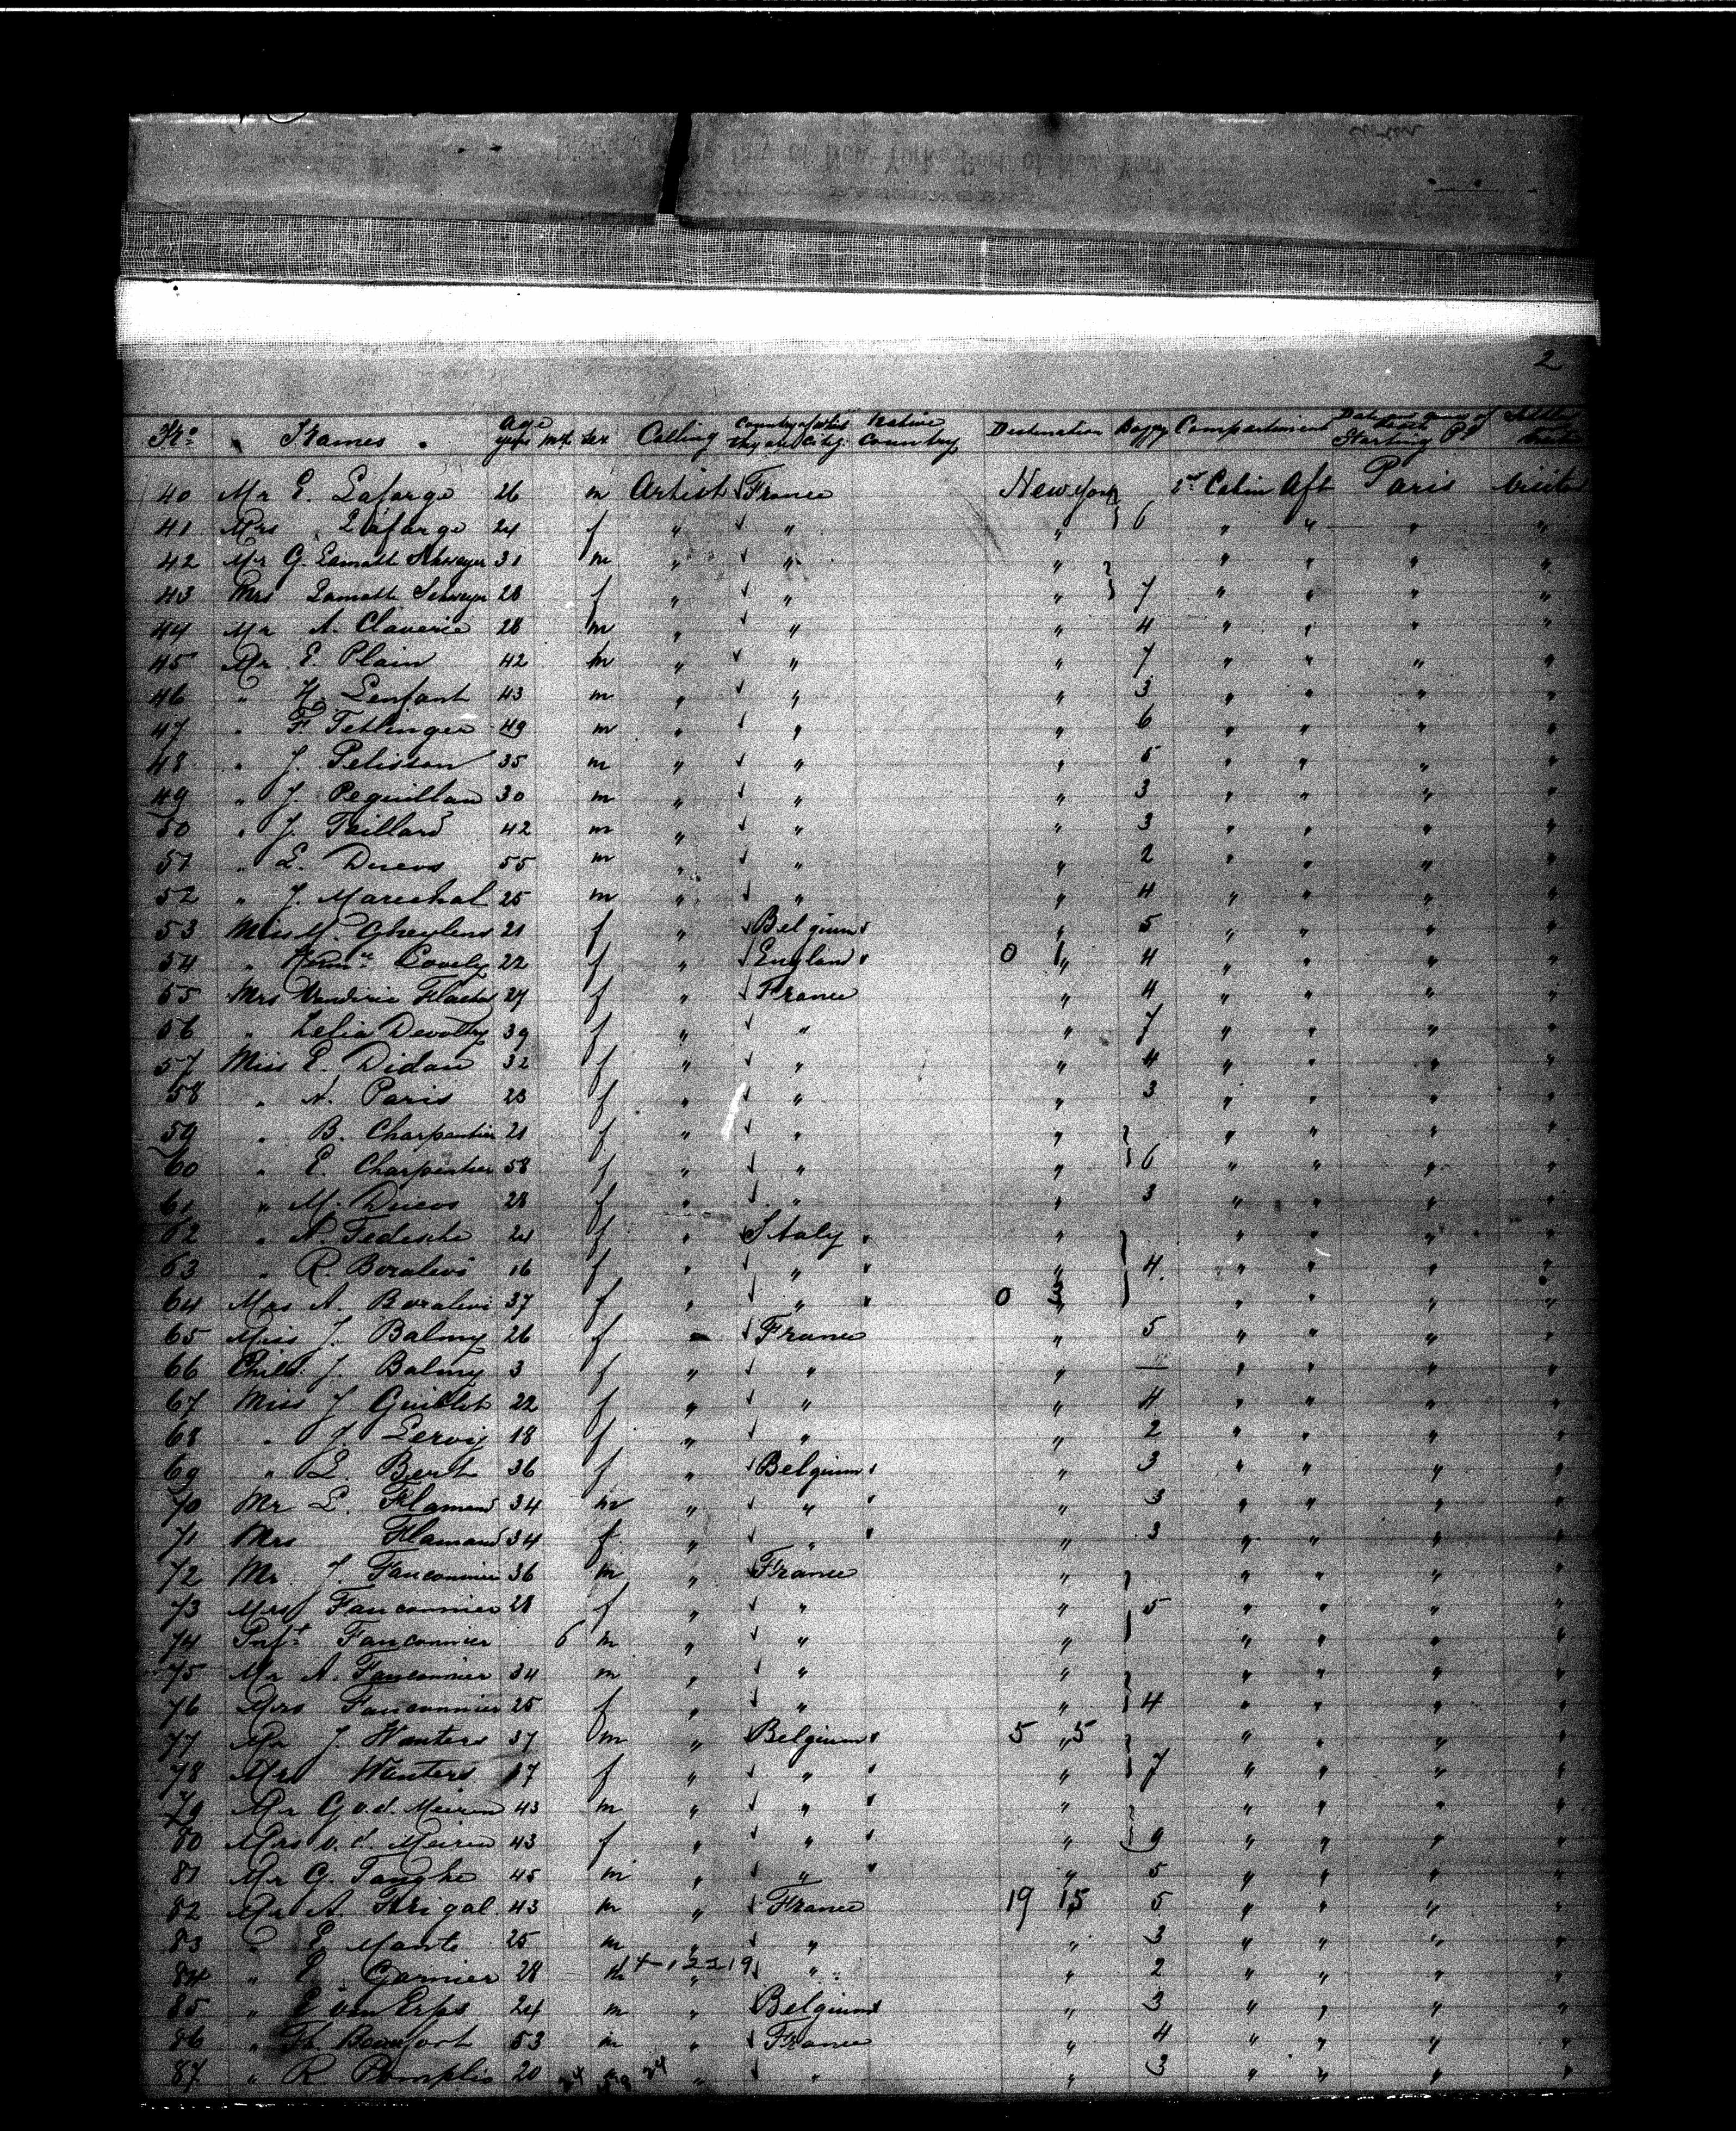 2
No. Names. Age yrs mth sex Calling Country of which they are Citiz. Native Country Destination Bagg Compartment Starting Pt
40 Mr E. Lafarge 26 m Artist France New York 2nd Cabin Aft Paris visite
41 Mrs Lafarge 24 f " " " 6 " " " "
42 Mr G. Lamatt Schweyer 31 m " " " " " " "
43 Mrs Lamatt Schweyer 28 f " " " 7 " " " "
44 Mr A. Claverie 28 m " " " 4 " " " "
45 Mr E. Plain 42 m " " " 7 " " " "
46 " H. Lenfant 43 m " " " 3 " " " "
47 " F. Tettinger 49 m " " " 6 " " " "
48 " J. Pelisson 35 m " " " 5 " " " "
49 " J. Pequillan 30 m " " " 3 " " " "
50 " J. Taillard 42 m " " " 3 " " " "
51 " L. Ducos 55 m " " " 2 " " " "
52 " J. Marechal 25 m " " " 4 " " " "
53 Miss M. Gheylens 21 f " Belgium " 5 " " " "
54 " Lovely 22 f " England 0 1 " 4 " " " "
55 Mrs 27 f " France " 4 " " " "
56 " Zelia Devothy 39 f " " " 7 " " " "
57 Miss E. Didan 32 f " " " 4 " " " "
58 " A. Paris 23 f " " " 3 " " " "
59 " B. Charpentier 21 f " " " " " " "
60 " E. Charpentier 58 f " " " 6 " " " "
61 " M. Ducos 28 f " " " 3 " " " "
62 " A. Tedeschi 21 f " Italy " " " " "
63 " R. Boralevi 16 f " " " 4 " " " "
64 Mrs A. Boralevi 37 f " " 0 3 " " " " "
65 Miss J. Balmy 26 f " France " 5 " " " "
66 Child. J. Balmy 3 f " " " — " " " "
67 Miss J Guillot 22 f " " " 4 " " " "
68 " J Leroy 18 f " " " 2 " " " "
69 " L. Bert 36 f " Belgium " 3 " " " "
70 Mr L. Flamend 34 m " " " 3 " " " "
71 Mrs Flamand 34 f " " " 3 " " " "
72 Mr J. Fauconnier 36 m " France " " " " "
73 Mrs Fauconnier 28 f " " " 5 " " " "
74 Inft. Fauconnier 6 m " " " " " " "
75 Mr A. Fauconnier 34 m " " " " " " "
76 Mrs Fauconnier 25 f " " " 4 " " " "
77 Mr J. Wauters 37 m " Belgium 5 " 5 " " " "
78 Mrs Wauters 37 f " " " 7 " " " "
79 Mr G v. d. Meiren 43 m " " " " " " "
80 Mrs v. d. Meiren 43 f " " " 9 " " " "
81 Mr G. Tanghe 45 m " " " 5 " " " "
82 Mr A. Frigal 43 m " France 19 15 5 " " " "
83 " E. Monte 25 m " " " 3 " " " "
84 " E. Garnier 28 m 4-12219 " " 2 " " " "
85 " E van Erps 24 m " Belgium " 3 " " " "
86 " Th Beaufort 53 m " France " 4 " " " "
87 " R. 20 " " " 3 " " " "